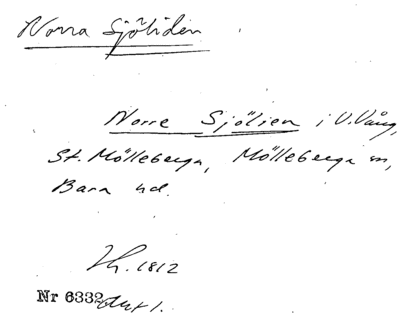 Norra Sjöliden
Norre Sjölien i V. Vång,
St. Mölleberga, Mölleberga sn,
Bara hd.
1812
Nr 6332 akt 1.